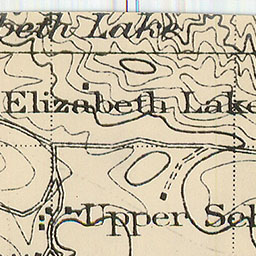 beth Lake
Elizabeth Lake
Upper Sch